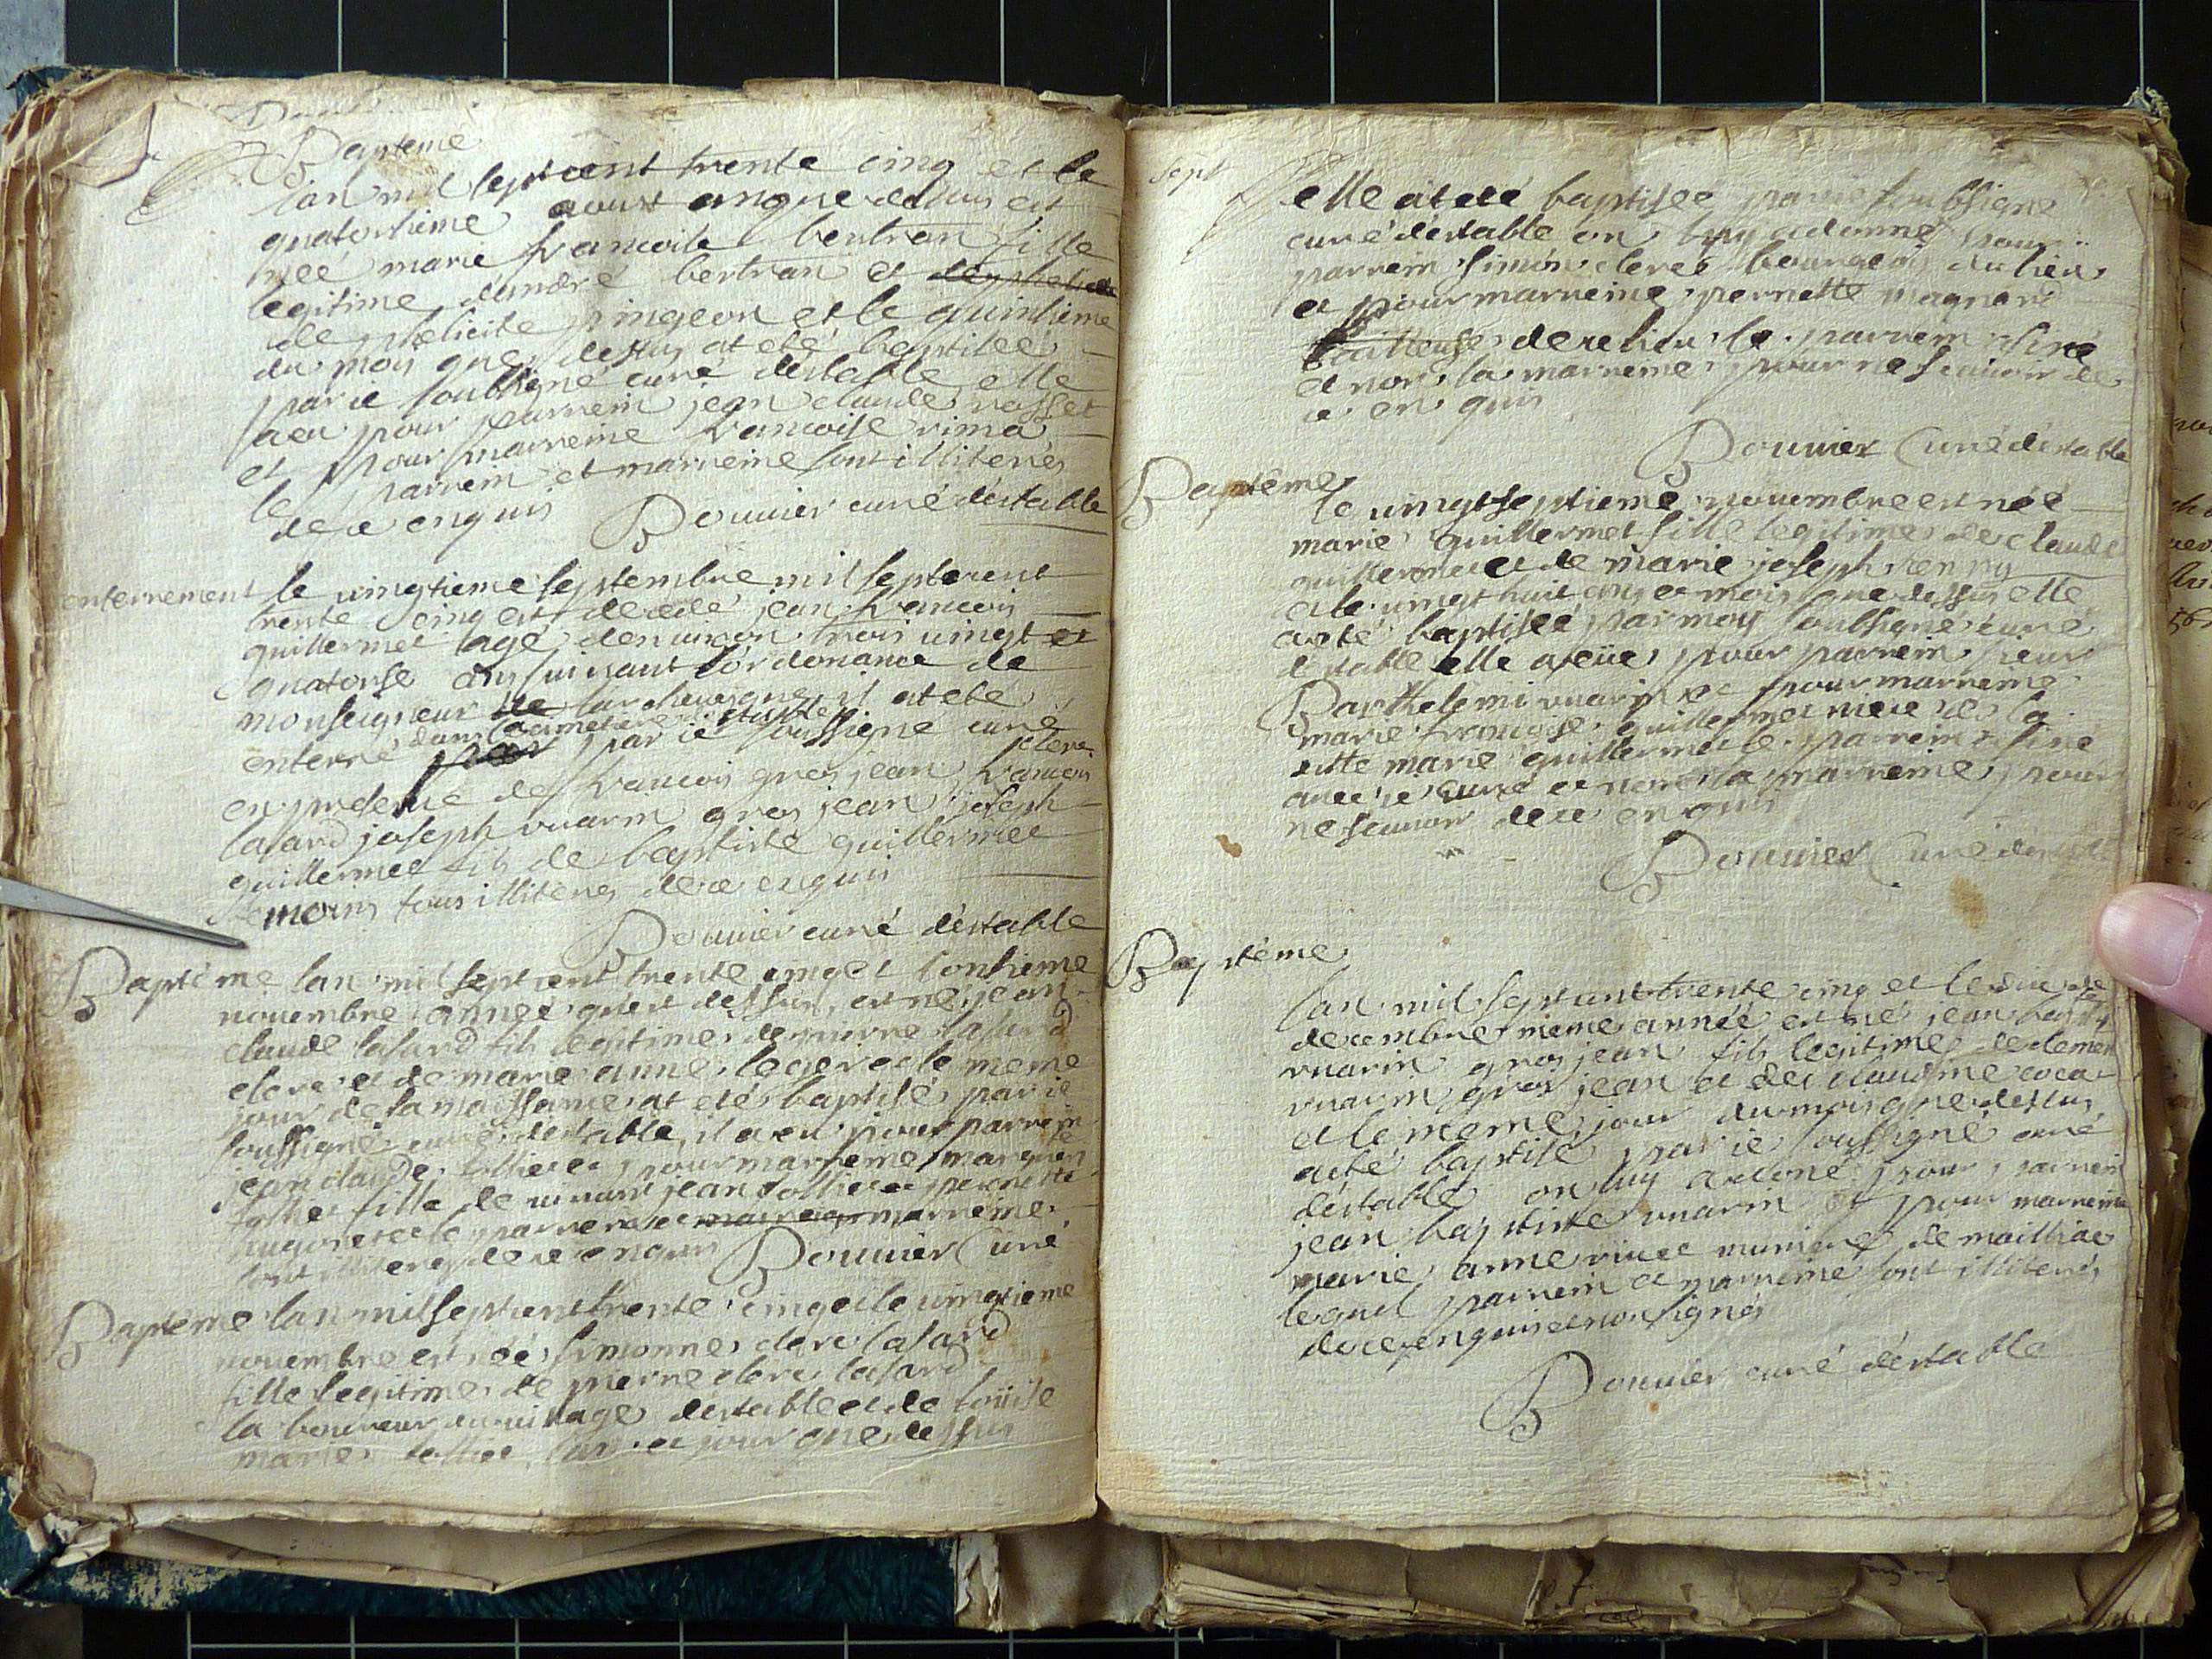 Bapteme
lan mil sept cent trente cinq et le
quatorhieme aoust anque dessus est
née marie francoise bertran fille
legitime dandré bertran et
de phelicite pingeon et le quinhieme
du mois que dessus at eté baptisée
par ie soubsigné curé déstable elle
a eu pour parrein jean claude rosset
et pour marreine francoise rima
le parrein et marreine sont illiterés
de ce enquis Bouuier curé déstable
enterrement le uingtieme septembre mil septcent
trente cinq est decedé jean francois
guillermet lagé denuiron trois uingt et
quatorse ans suiuant lordonance de
monseigneur larcheuesque il at eté
enterré dans la cimetiere déstable par ie soussigné curé
en presence de francois gros jean francois clerc
lasard joseph uuarin gros jean joseph
guillermet fils de baptiste guillermet
temoins tous illiterés de ce enquis
Bouuier curé déstable
Bapteme lan mil sept cent trente cinq et lonhieme
nouembre année que dessus, est né jean
claude lasard fils legitime de pierre lasard
clerc et de marie anne leger et le meme
jour de sa naissance at eté baptisé par ie
soussigné curé déstable, il a eu pour parrein
jean claude tollie et pour marreine
tollie fille de uiuant jean tollie et pernette
le parrein et marreine
sont illiterés de ce enquis Bouuier Curé
Bapteme lan mil sept cent trente cinq et le uingtieme
nouembre est née simonne clerc lasard
fille legitime de pierre clerc lasard
laboureur du uilage déstable et de louise
marie tollie lan et jour que dessus
sept
elle at eté baptisée par ie soubsigné
curé déstable on luy a donné pour
parrein simon clerc bourgeois du lieu
et pour marreine pernette magnard
tailleuse de ce lieu le parrein siné
et non la marreine pour ne scauoir de
ce en quis
Bouuier Curé déstable
Bapteme
le uingtseptieme nouembre est née
marie guillermet fille legitime de claude
guillermet et de marie joseph
et le uingt huit an et mois que dessus elle
a eté baptisée par moy soubsigné curé
déstable elle a eüe pour parrein sieur
Barthelemi uuarin et pour marreine
marie francoise guillermet niece de la
ditte marie guillermet le parrein a siné
auec ie curé et non la marreine pour
ne scauoir de ce enquis
Bouuier Curé déstable
Bapteme
lan mil sept cent trente cinq et le dix de
decembre meme année est né jean baptiste
uuarin gros jean fils legitime de clement
uuarin gros jean et de claudine coca
et le meme jour du mois que dessus
a eté baptisé par ie soussigné curé
déstable on luy a doné pour parrein
jean baptiste uuarin et pour marreine
marie anne muniere de mailliae
lequel parrein et marreine sont illiterés
de ce enquis et non signés
Bouuier curé déstable